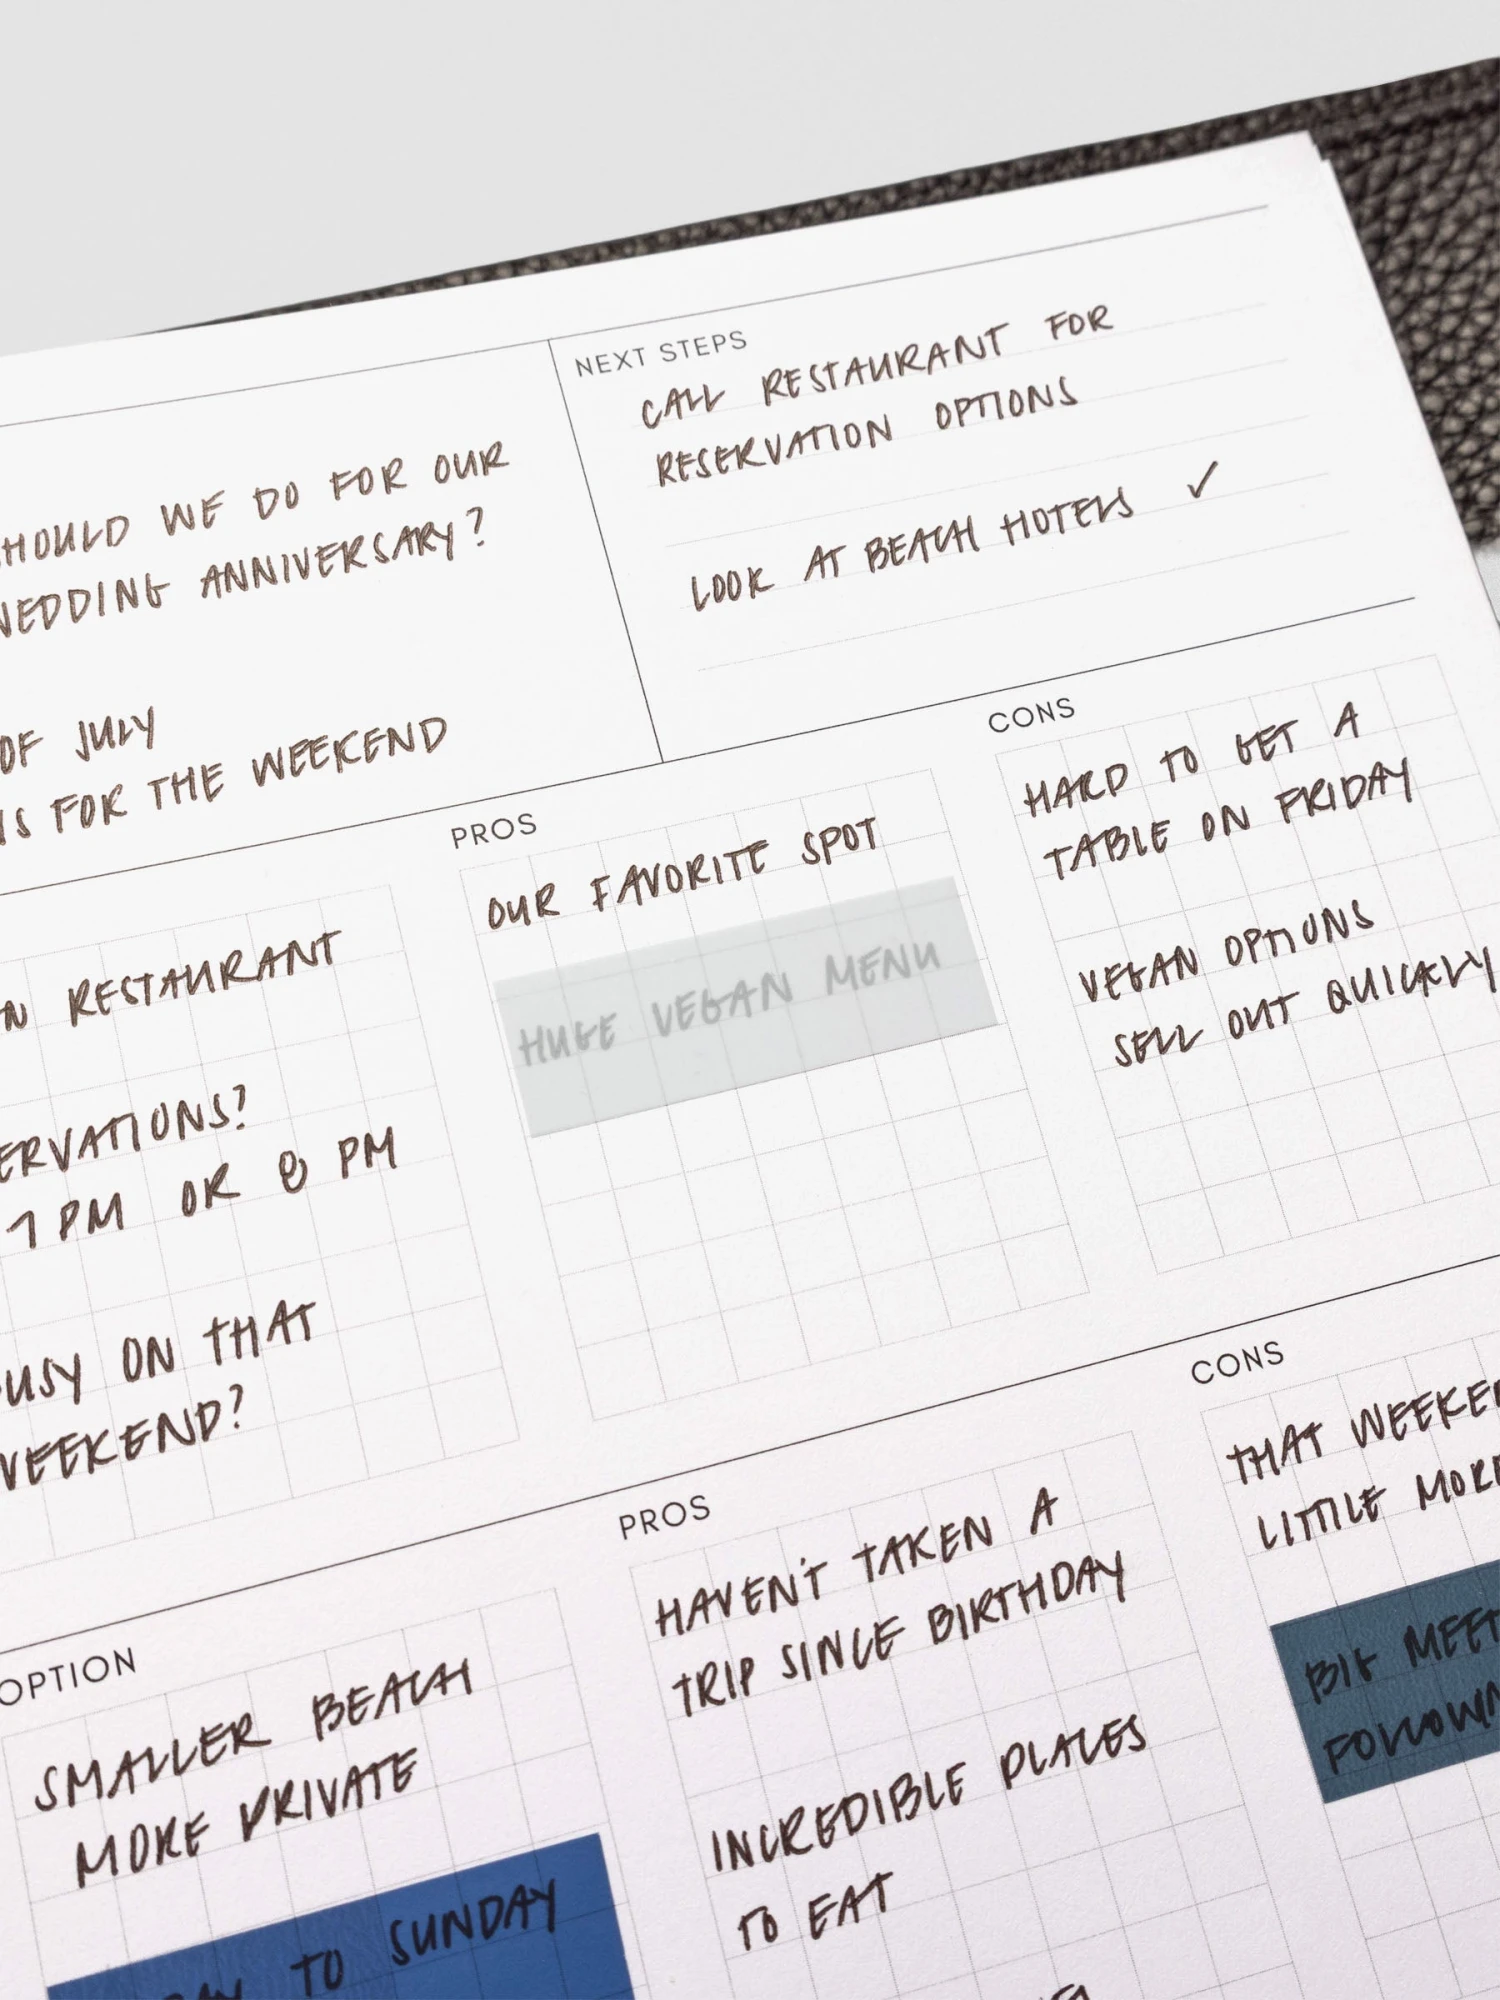 SHOULD WE DO FOR OUR
WEDDING ANNIVERSARY?
OF JULY
FOR THE WEEKEND
NEXT STEPS
CALL RESTAURANT FOR
RESERVATION OPTIONS
LOOK AT BEACH HOTELS ✓
RESTAURANT
7 PM OR 8 PM
ON THAT
WEEKEND?
PROS
OUR FAVORITE SPOT
HUGE VEGAN MENU
CONS
HARD TO GET A
TABLE ON FRIDAY
VEGAN OPTIONS
SELL OUT QUICKLY
OPTION
SMALLER BEACH
MORE PRIVATE
TO SUNDAY
PROS
HAVEN'T TAKEN A
TRIP SINCE BIRTHDAY
INCREDIBLE PLACES
TO EAT
CONS
THAT
LITTLE MORE
BIG